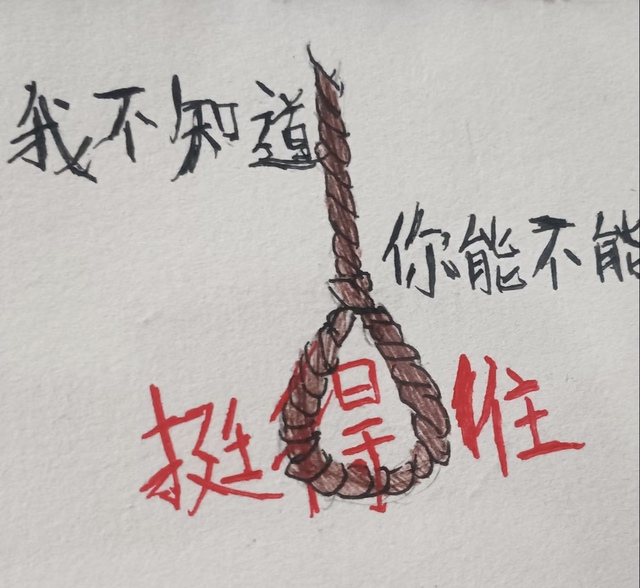 我不知道
你能不能
挺得住